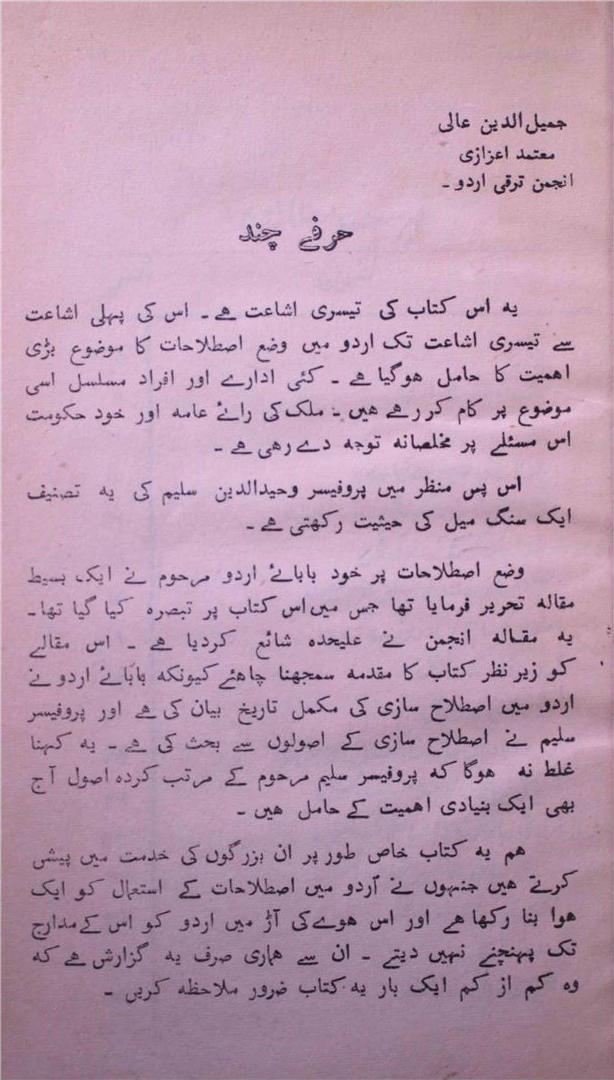 جمیل الدین عالی
معتمد اعزازی
انجمن ترقی اردو ۔
حرفے چند
یه اس کتاب کی تیسری اشاعت ہے ۔ اس کی پہلی اشاعت
سے تیسری اشاعت تک اردو میں وضع اصطلاحات کا موضوع بڑی
اہمیت کا حامل ہوگیا ہے ۔ کئی ادارے اور افراد مسلسل اسی
موضوع پر کام کر رہے ہیں ۔ ملک کی رائے عامه اور خود حکومت
اس مسئلے پر مخلصانه توجه دے رہی ہے ۔
اس پس منظر میں پروفیسر وحیدالدین سلیم کی یه تصنیف
ایک سنگ میل کی حیثیت رکھتی ہے ۔
وضع اصطلاحات پر خود بابائے اردو مرحوم نے ایک بسیط
مقاله تحریر فرمایا تھا جس میں اس کتاب پر تبصره کیا گیا تھا ۔
یه مقاله انجمن نے علیحده شائع کردیا ہے ۔ اس مقالے
کو زیر نظر کتاب کا مقدمه سمجھنا چاہئے کیونکه بابائے اردو نے
اردو میں اصطلاح سازی کی مکمل تاریخ بیان کی ہے اور پروفیسر
سلیم نے اصطلاح سازی کے اصولوں سے بحث کی ہے ۔ یه کہنا
غلط نه ہوگا که پروفیسر سلیم مرحوم کے مرتب کرده اصول آج
بھی ایک بنیادی اہمیت کے حامل ہیں ۔
ہم یه کتاب خاص طور پر ان بزرگوں کی خدمت میں پیش
کرتے ہیں جنہوں نے اردو میں اصطلاحات کے استعمال کو ایک
ہوا بنا رکھا ہے اور اس ہوے کی آڑ میں اردو کو اس کے مدارج
تک پہنچنے نہیں دیتے ۔ ان سے ہماری صرف یه گزارش ہے که
وه کم از کم ایک بار یه کتاب ضرور ملاحظه کریں ۔